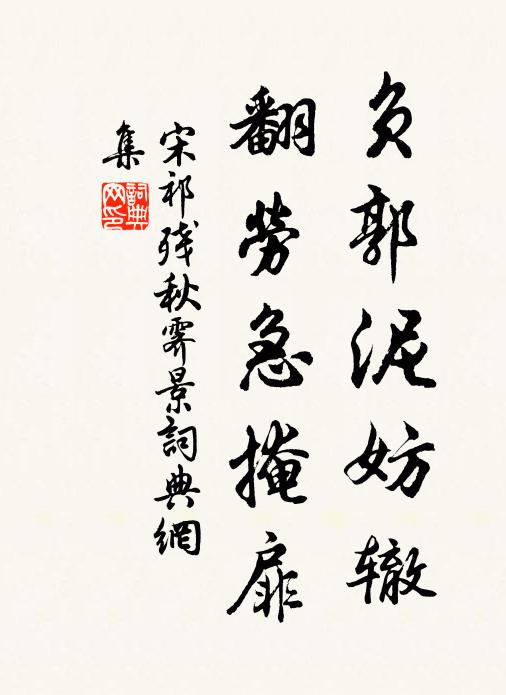 负郭泥妨辙
翻勞急掩扉
宋祁残秋霽景詞典網
集
詞典
网印